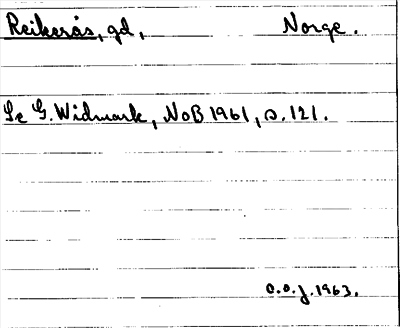 Reikerås, gd, Norge.
Se G. Widmark, NoB 1961, s. 121.
O.o.j. 1963.